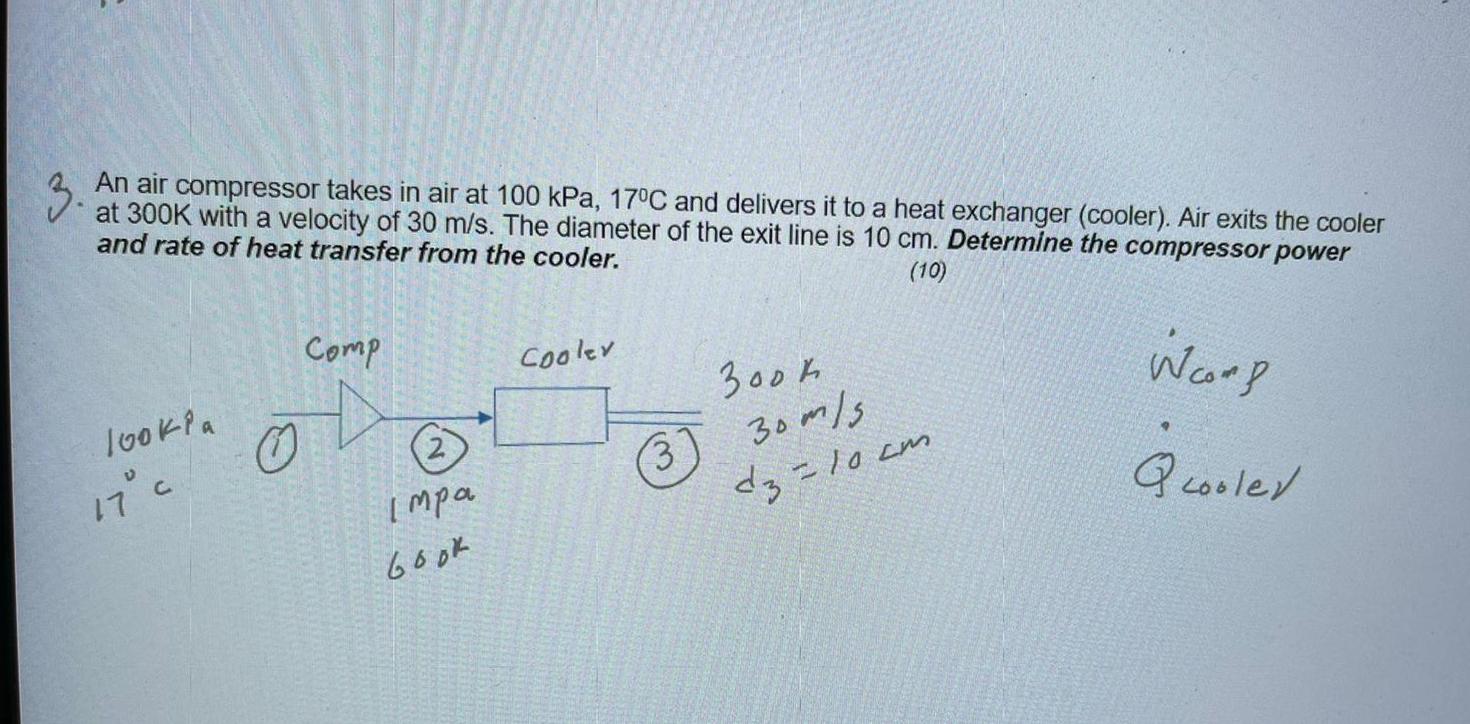 3. An air compressor takes in air at 100 kPa, 17ºC and delivers it to a heat exchanger (cooler). Air exits the cooler
at 300K with a velocity of 30 m/s. The diameter of the exit line is 10 cm. Determine the compressor power
and rate of heat transfer from the cooler.
(10)
Comp
Cooler
300 K
30 m/s
d3 = 10 cm
100 kPa
17° C
1
2
3
1 mpa
600K
Ẇcomp
Q̇cooler